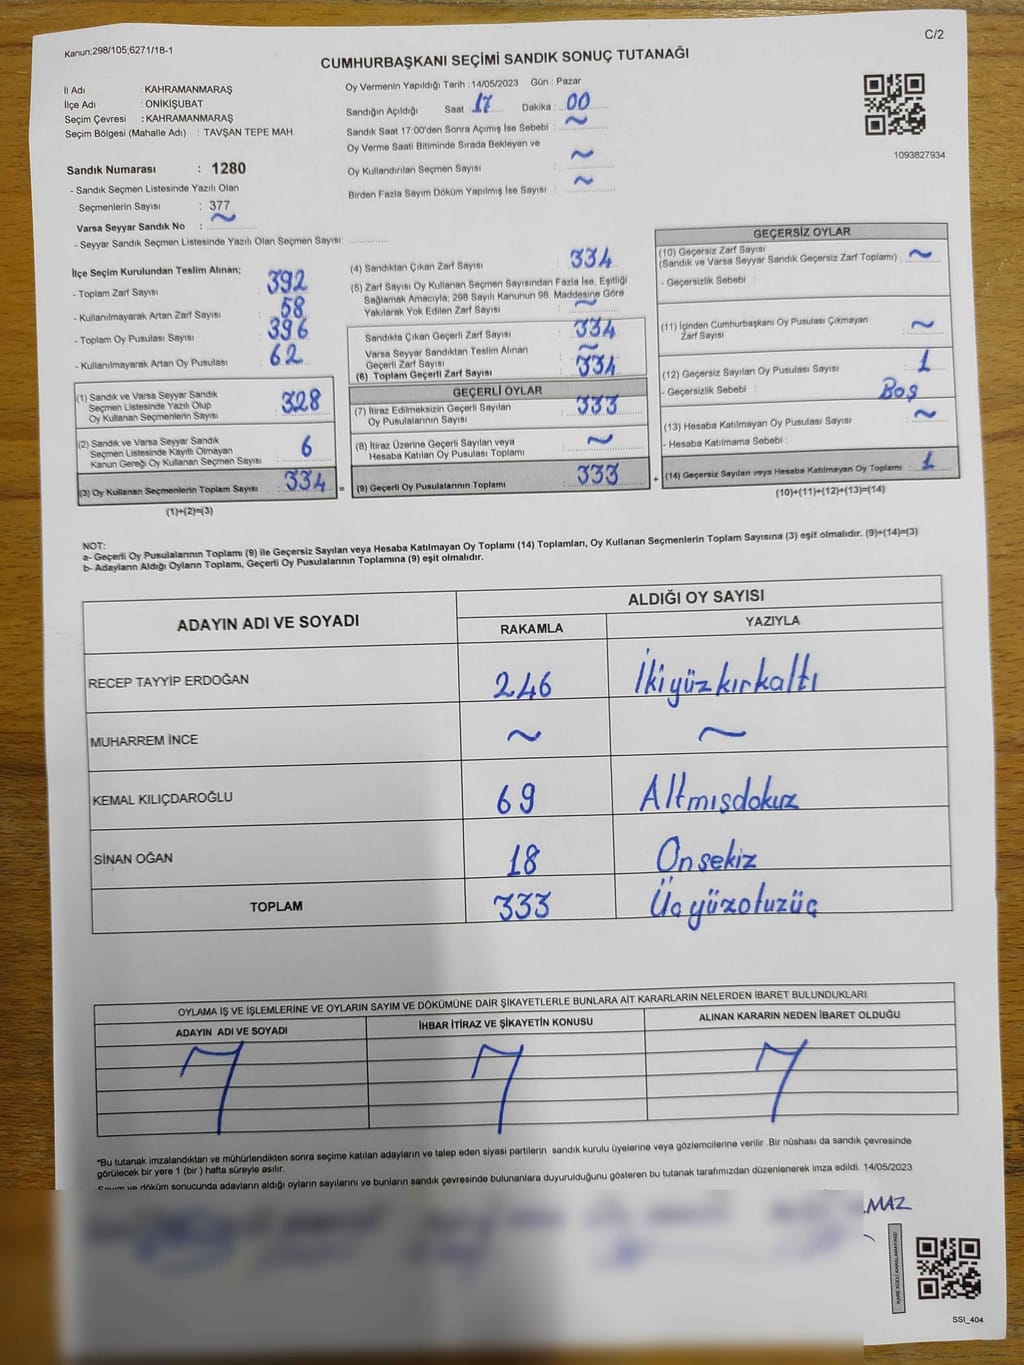 Kanun;298/105;6271/18-1
C/2
CUMHURBAŞKANI SEÇİMİ SANDIK SONUÇ TUTANAĞI
İl Adı : KAHRAMANMARAŞ
İlçe Adı : ONİKİŞUBAT
Seçim Çevresi : KAHRAMANMARAŞ
Seçim Bölgesi (Mahalle Adı) : TAVŞAN TEPE MAH.
Oy Vermenin Yapıldığı Tarih : 14/05/2023 Gün : Pazar
Sandığın Açıldığı Saat : 17 Dakika : 00
Sandık Saat 17:00'den Sonra Açımış İse Sebebi : ~
Oy Verme Saati Bitiminde Sırada Bekleyen ve
Oy Kullandırılan Seçmen Sayısı : ~
Birden Fazla Sayım Döküm Yapılmış İse Sayısı : ~
1093827934
Sandık Numarası : 1280
- Sandık Seçmen Listesinde Yazılı Olan
Seçmenlerin Sayısı : 377
Varsa Seyyar Sandık No : ~
- Seyyar Sandık Seçmen Listesinde Yazılı Olan Seçmen Sayısı:
İlçe Seçim Kurulundan Teslim Alınan;
- Toplam Zarf Sayısı : 392
- Kullanılmayarak Artan Zarf Sayısı : 58
- Toplam Oy Pusulası Sayısı : 396
- Kullanılmayarak Artan Oy Pusulası : 62
(1) Sandık ve Varsa Seyyar Sandık
Seçmen Listesinde Yazılı Olup
Oy Kullanan Seçmenlerin Sayısı : 328
(2) Sandık ve Varsa Seyyar Sandık
Seçmen Listesinde Kayıtlı Olmayan
Kanun Gereği Oy Kullanan Seçmen Sayısı : 6
(3) Oy Kullanan Seçmenlerin Toplam Sayısı : 334 =
(1)+(2)=(3)
(4) Sandıktan Çıkan Zarf Sayısı : 334
(5) Zarf Sayısı Oy Kullanan Seçmen Sayısından Fazla İse, Eşitliği
Sağlamak Amacıyla; 298 Sayılı Kanunun 98. Maddesine Göre
Yakılarak Yok Edilen Zarf Sayısı : ~
Sandıkta Çıkan Geçerli Zarf Sayısı : 334
Varsa Seyyar Sandıktan Teslim Alınan
Geçerli Zarf Sayısı : ~
(6) Toplam Geçerli Zarf Sayısı : 334
GEÇERLİ OYLAR
(7) İtiraz Edilmeksizin Geçerli Sayılan
Oy Pusulalarının Sayısı : 333
(8) İtiraz Üzerine Geçerli Sayılan veya
Hesaba Katılan Oy Pusulası Toplamı : ~
(9) Geçerli Oy Pusulalarının Toplamı : 333 +
GEÇERSİZ OYLAR
(10) Geçersiz Zarf Sayısı
(Sandık ve Varsa Seyyar Sandık Geçersiz Zarf Toplamı) : ~
- Geçersizlik Sebebi :
(11) İçinden Cumhurbaşkanı Oy Pusulası Çıkmayan
Zarf Sayısı : ~
(12) Geçersiz Sayılan Oy Pusulası Sayısı : 1
- Geçersizlik Sebebi : Boş
(13) Hesaba Katılmayan Oy Pusulası Sayısı : ~
- Hesaba Katılmama Sebebi :
(14) Geçersiz Sayılan veya Hesaba Katılmayan Oy Toplamı : 1
(10)+(11)+(12)+(13)=(14)
NOT:
a- Geçerli Oy Pusulalarının Toplamı (9) ile Geçersiz Sayılan veya Hesaba Katılmayan Oy Toplamı (14) Toplamları, Oy Kullanan Seçmenlerin Toplam Sayısına (3) eşit olmalıdır. (9)+(14)=(3)
b- Adayların Aldığı Oyların Toplamı, Geçerli Oy Pusulalarının Toplamına (9) eşit olmalıdır.
ADAYIN ADI VE SOYADI
ALDIĞI OY SAYISI
RAKAMLA YAZIYLA
RECEP TAYYİP ERDOĞAN 246 İkiyüzkırkaltı
MUHARREM İNCE ~ ~
KEMAL KILIÇDAROĞLU 69 Altmışdokuz
SİNAN OĞAN 18 Onsekiz
TOPLAM 333 Üçyüzotuzüç
OYLAMA İŞ VE İŞLEMLERİNE VE OYLARIN SAYIM VE DÖKÜMÜNE DAİR ŞİKAYETLERLE BUNLARA AİT KARARLARIN NELERDEN İBARET BULUNDUKLARI
ADAYIN ADI VE SOYADI İHBAR İTİRAZ VE ŞİKAYETİN KONUSU ALINAN KARARIN NEDEN İBARET OLDUĞU
*Bu tutanak imzalandıktan ve mühürlendikten sonra seçime katılan adayların ve talep eden siyasi partilerin sandık kurulu üyelerine veya gözlemcilerine verilir .Bir nüshası da sandık çevresinde
görülecek bir yere 1 (bir ) hafta süreyle asılır.
Sayım ve döküm sonucunda adayların aldığı oyların sayılarını ve bunların sandık çevresinde bulunanlara duyurulduğunu gösteren bu tutanak tarafımızdan düzenlenerek imza edildi. 14/05/2023
MAZ
SSI_404